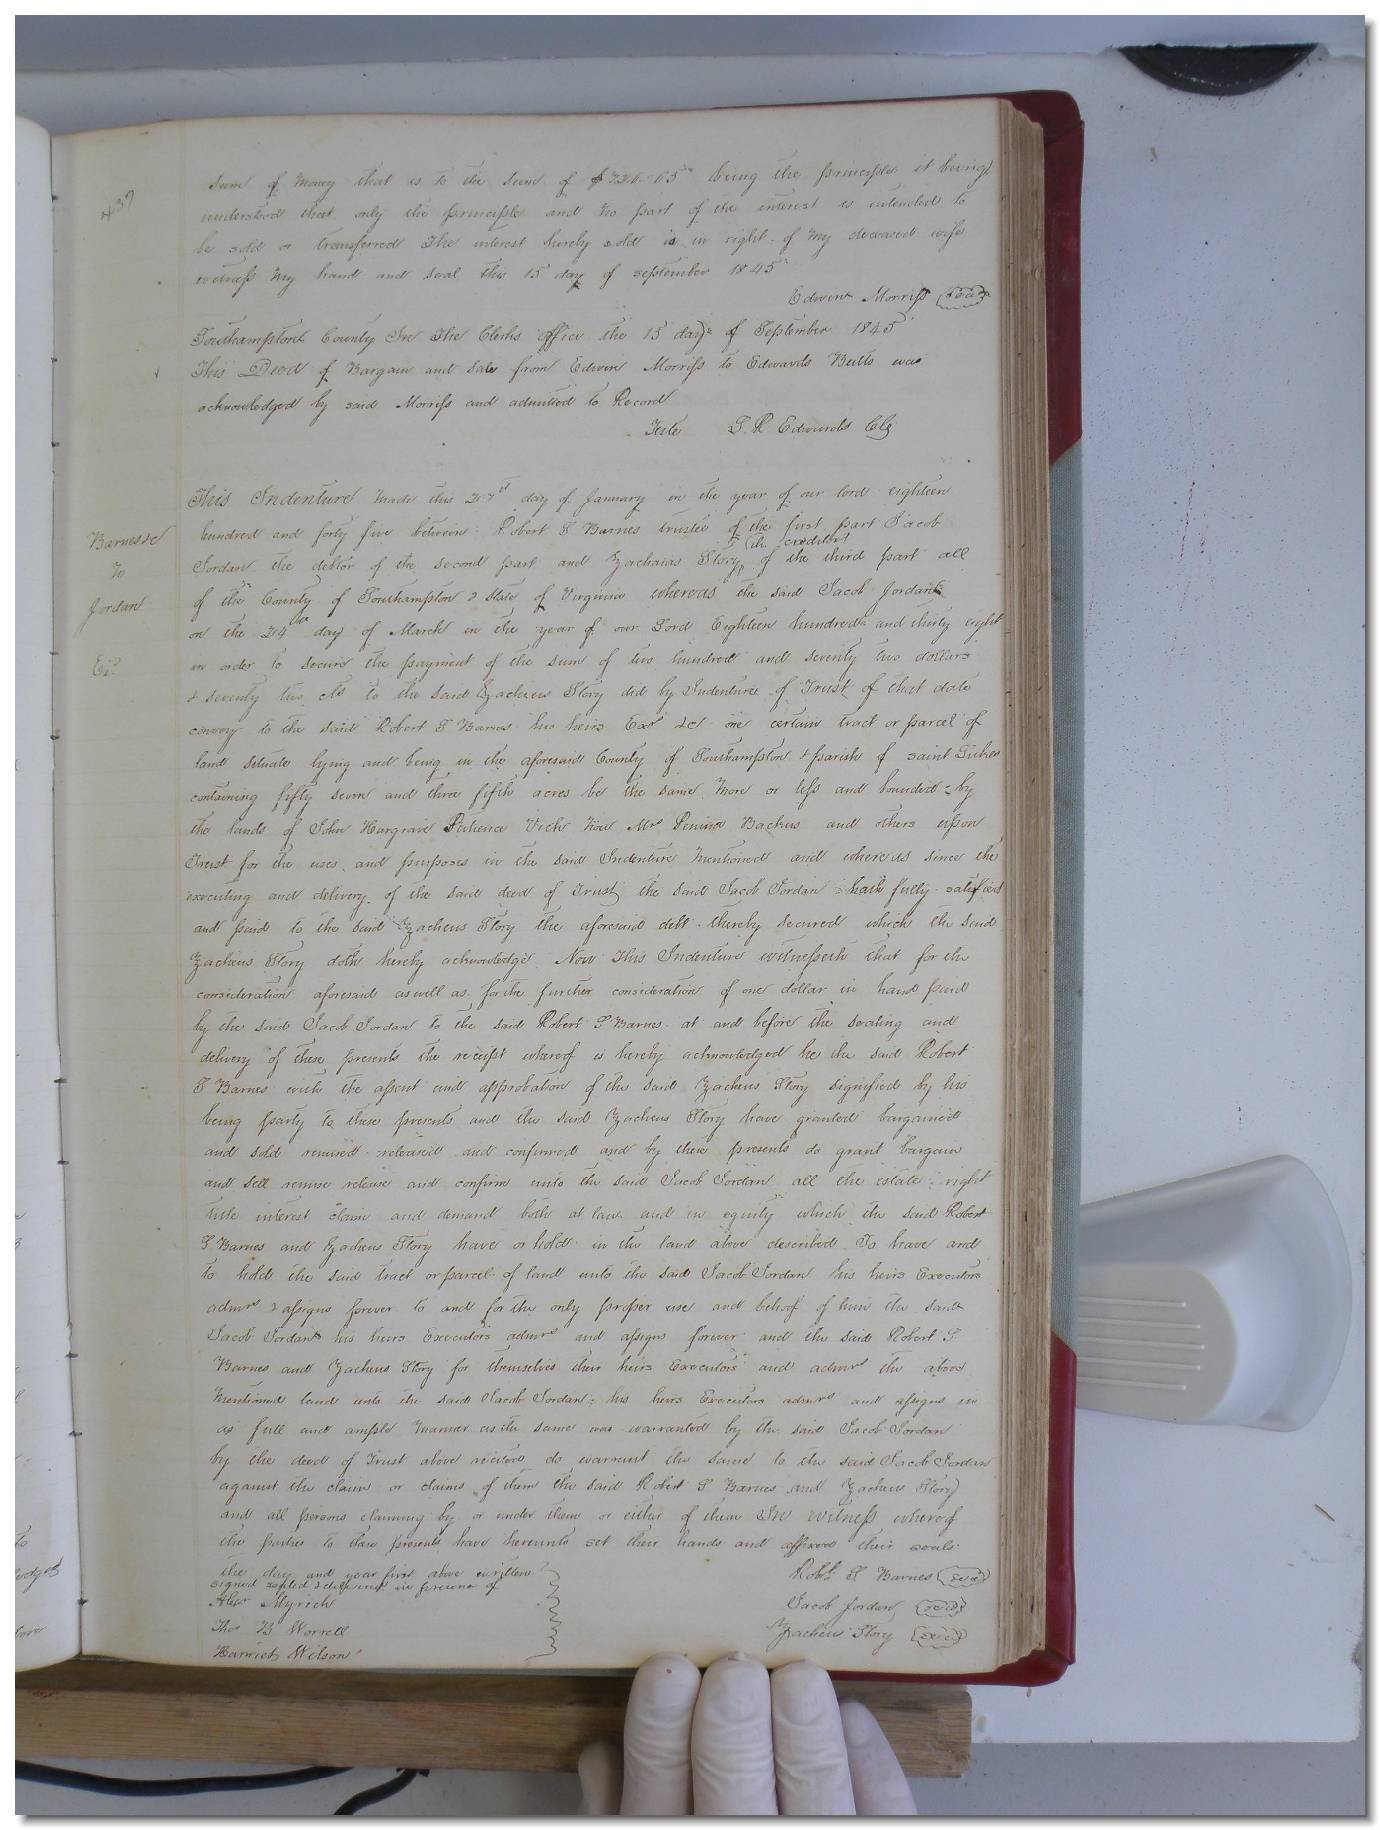 437
sum of money that is to the sum of $ being the principle it being
understood that only the principle and no part of the interest is intended to
be sold or transferred The interest hereby sold is in right of my deceased wife
witness my hand and seal this 15 day of september 1845
Edwin Morriss seal
Southampton County In The Clerks office the 15 day of September 1845
This Deed of Bargain and sale from Edwin Morriss to Edwards Butts was
acknowledged by said Morriss and admitted to Record
Teste L. R Edwards Clk
Barnes &c
To
Jordan
This Indenture made this day of January in the year of our lord eighteen
hundred and forty five between Robert S Barnes trustee of the first part Jacob
Jordan the debtor of the second part and Zachaias Story the creditor of the third part all
of the County of Southampton & State of Virginia whereas the said Jacob Jordan
on the 24th day of March in the year of our Lord Eighteen hundred and thirty eight
in order to secure the payment of the sum of two hundred and seventy two dollars
& seventy two cts to the said Zacheus Story did by Indenture of Trust of that date
convey to the said Robert S Barnes his heirs Exrs &c one certain tract or parcel of
land situate lying and being in the aforesaid County of Southampton & parish of saint Lukes
containing fifty seven and three fifth acres be the same more or less and bounded by
the lands of John Hargrave Patience Vick now Mrs Backus and others upon
Trust for the uses and purposes in the said Indenture mentioned and whereas since the
executing and delivery of the said deed of Trust the said Jacob Jordan hath fully satisfied
and paid to the said Zacheus Story the aforesaid debt thereby secured which the said
Zacheus Story doth hereby acknowledge Now This Indenture witnesseth that for the
consideration aforesaid as well as for the further consideration of one dollar in hand paid
by the said Jacob Jordan to the said Robert S Barnes at and before the sealing and
delivery of these presents the receipt whereof is hereby acknowledged he the said Robert
S Barnes with the assent and approbation of the said Zacheus Story signified by his
being party to these presents and the said Zacheus Story have granted bargained
and sold remised released and confirmed and by these presents do grant bargain
and sell remise release and confirm unto the said Jacob Jordan all the estate right
title interest claim and demand both at law and in equity which the said Robert
S Barnes and Zacheus Story have or hold in the land above described To have and
to hold the said tract or parcel of land unto the said Jacob Jordan his heirs Executors
admrs & assigns forever to and for the only proper use and behoof of him the said
Jacob Jordan his heirs Executors admrs and assigns forever and the said Robert S.
Barnes and Zacheus Story for themselves their heirs Executors and admrs the above
mentioned land unto the said Jacob Jordan his heirs Executors admrs and assigns in
as full and ample manner as the same was warranted by the said Jacob Jordan
by the deed of Trust above recited do warrant the same to the said Jacob Jordan
against the claim or claims of them the said Robert S Barnes and Zacheus Story
and all persons claiming by or under them or either of them In witness whereof
the parties to these presents have hereunto set their hands and affixed their seals
the day and year first above written
signed sealed & delivered in presence of
Robt. S Barnes seal
Alexr Myrick
Jacob Jordan seal
Thos B Worrell
Zacheus Story seal
Harriet Wilson